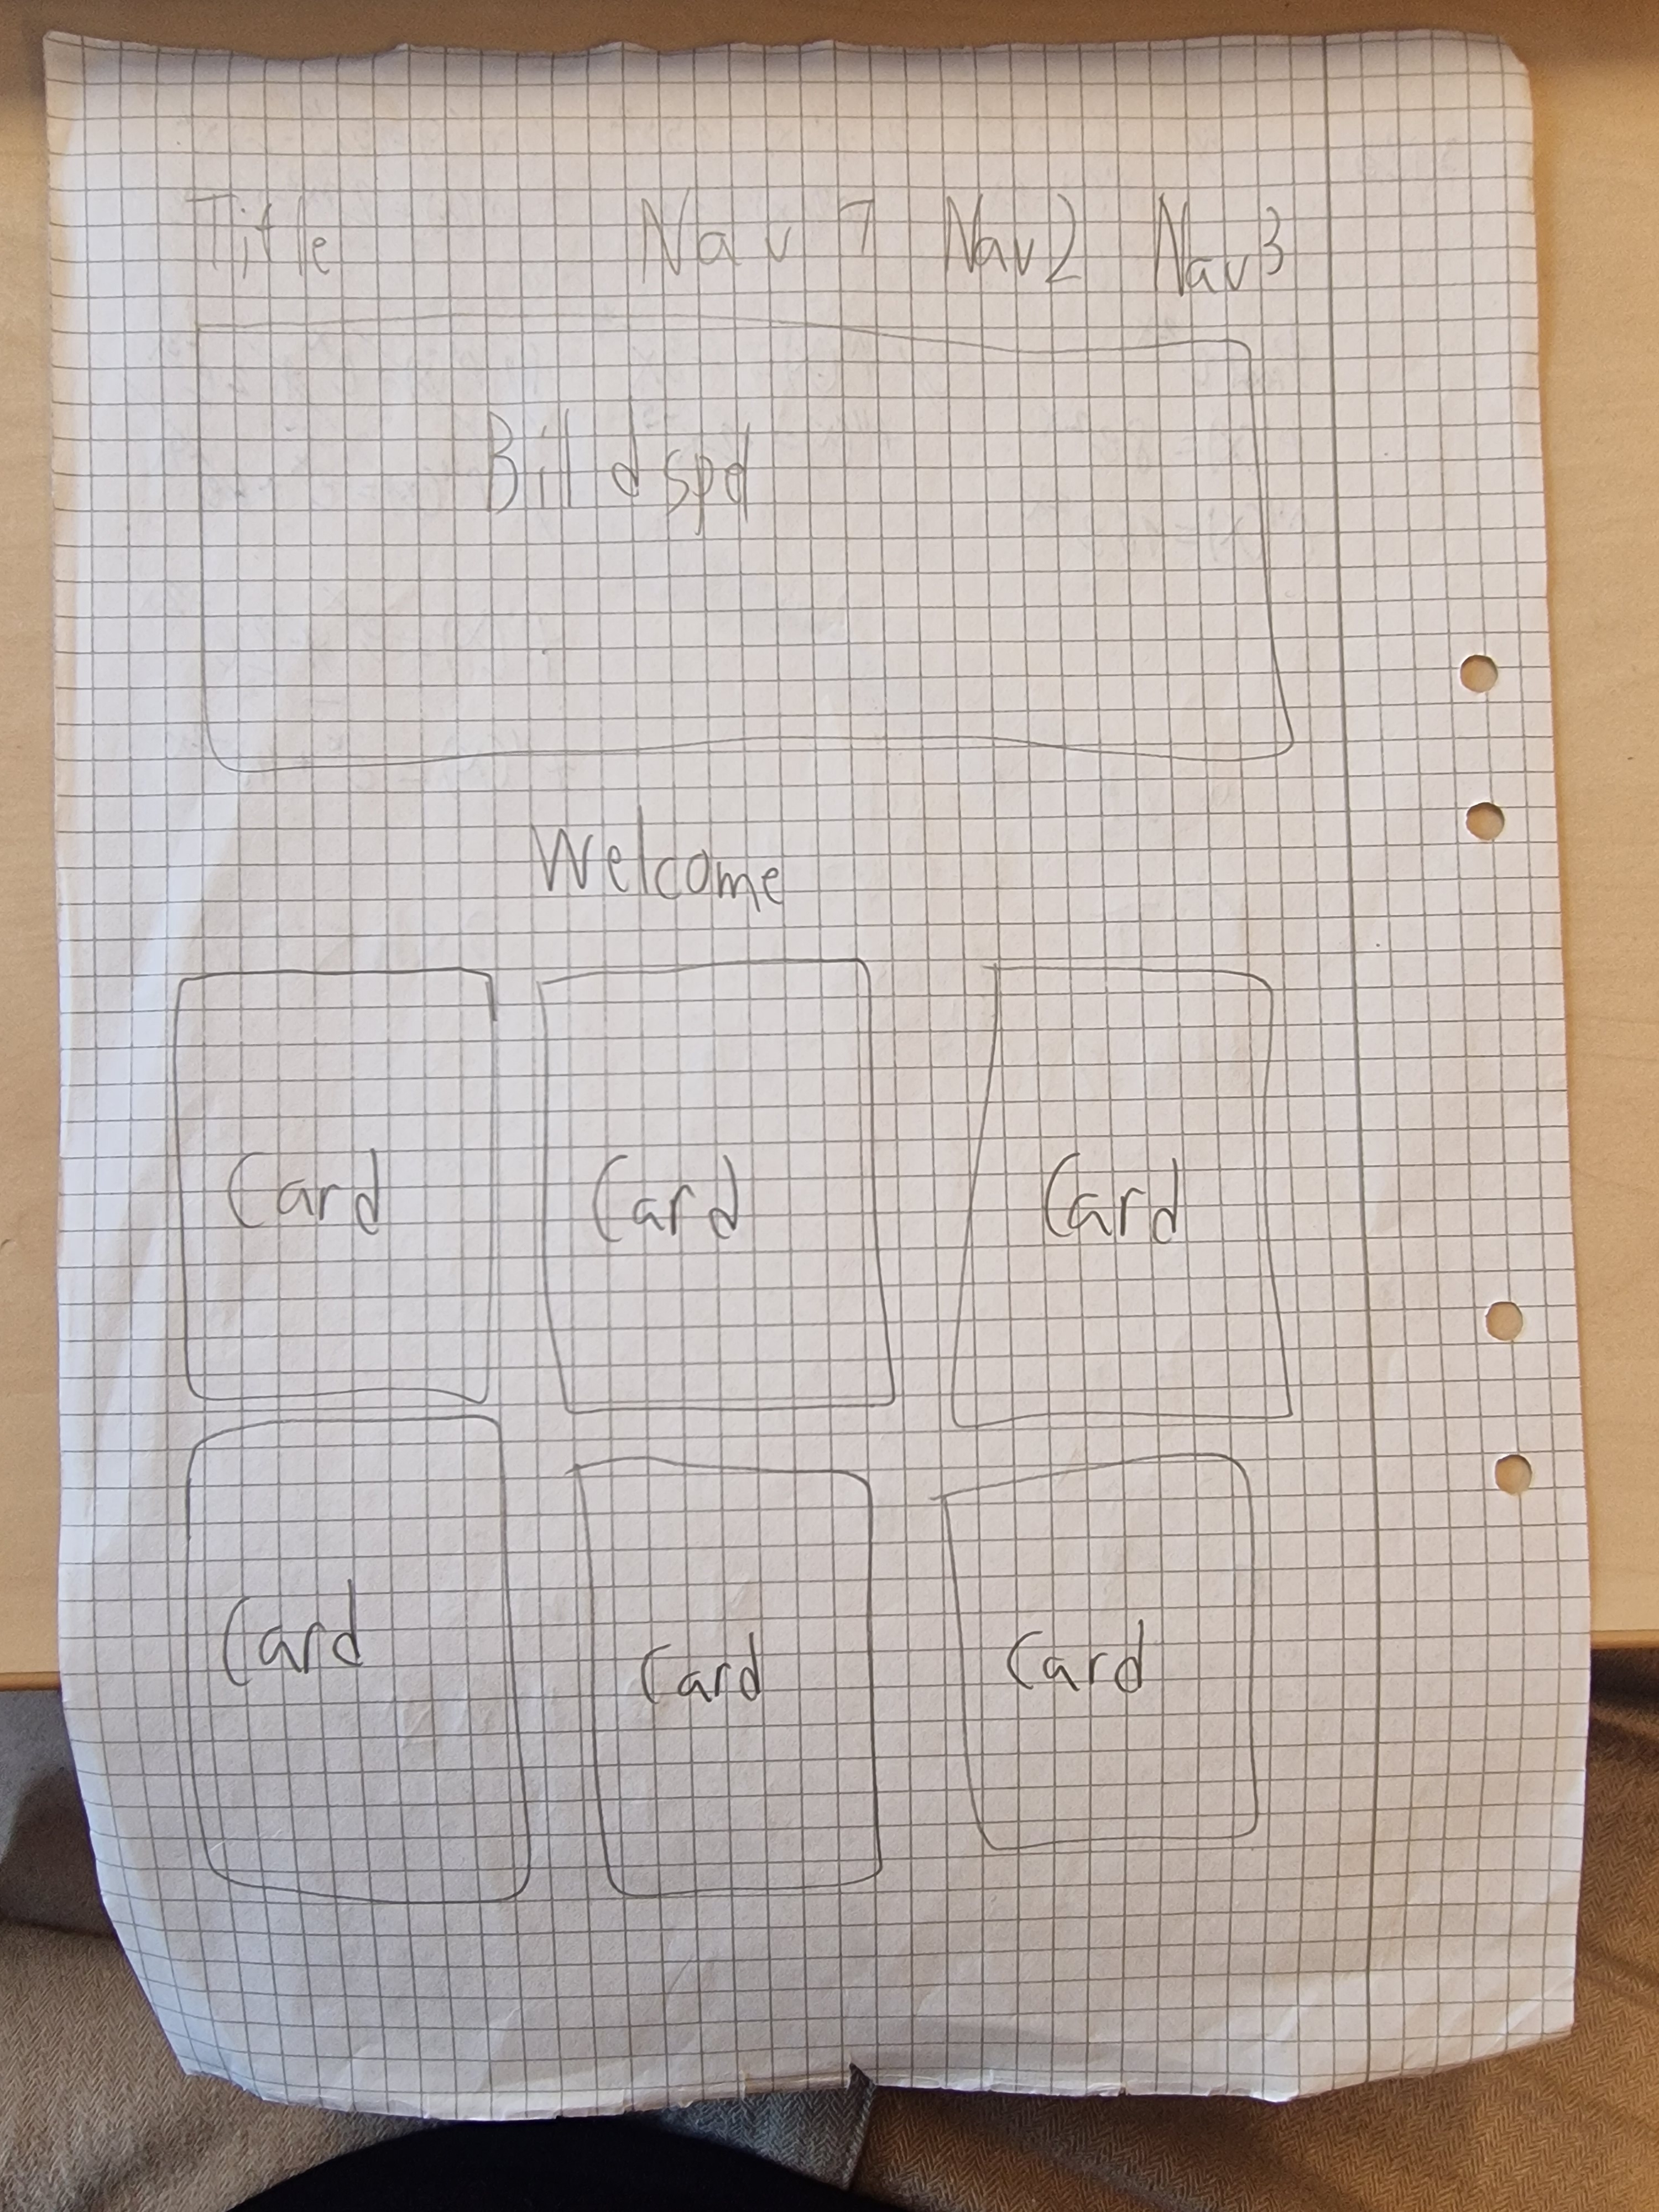 Title Nav 1 Nav2 Nav3
Welcome
Card Card Card
Card Card Card